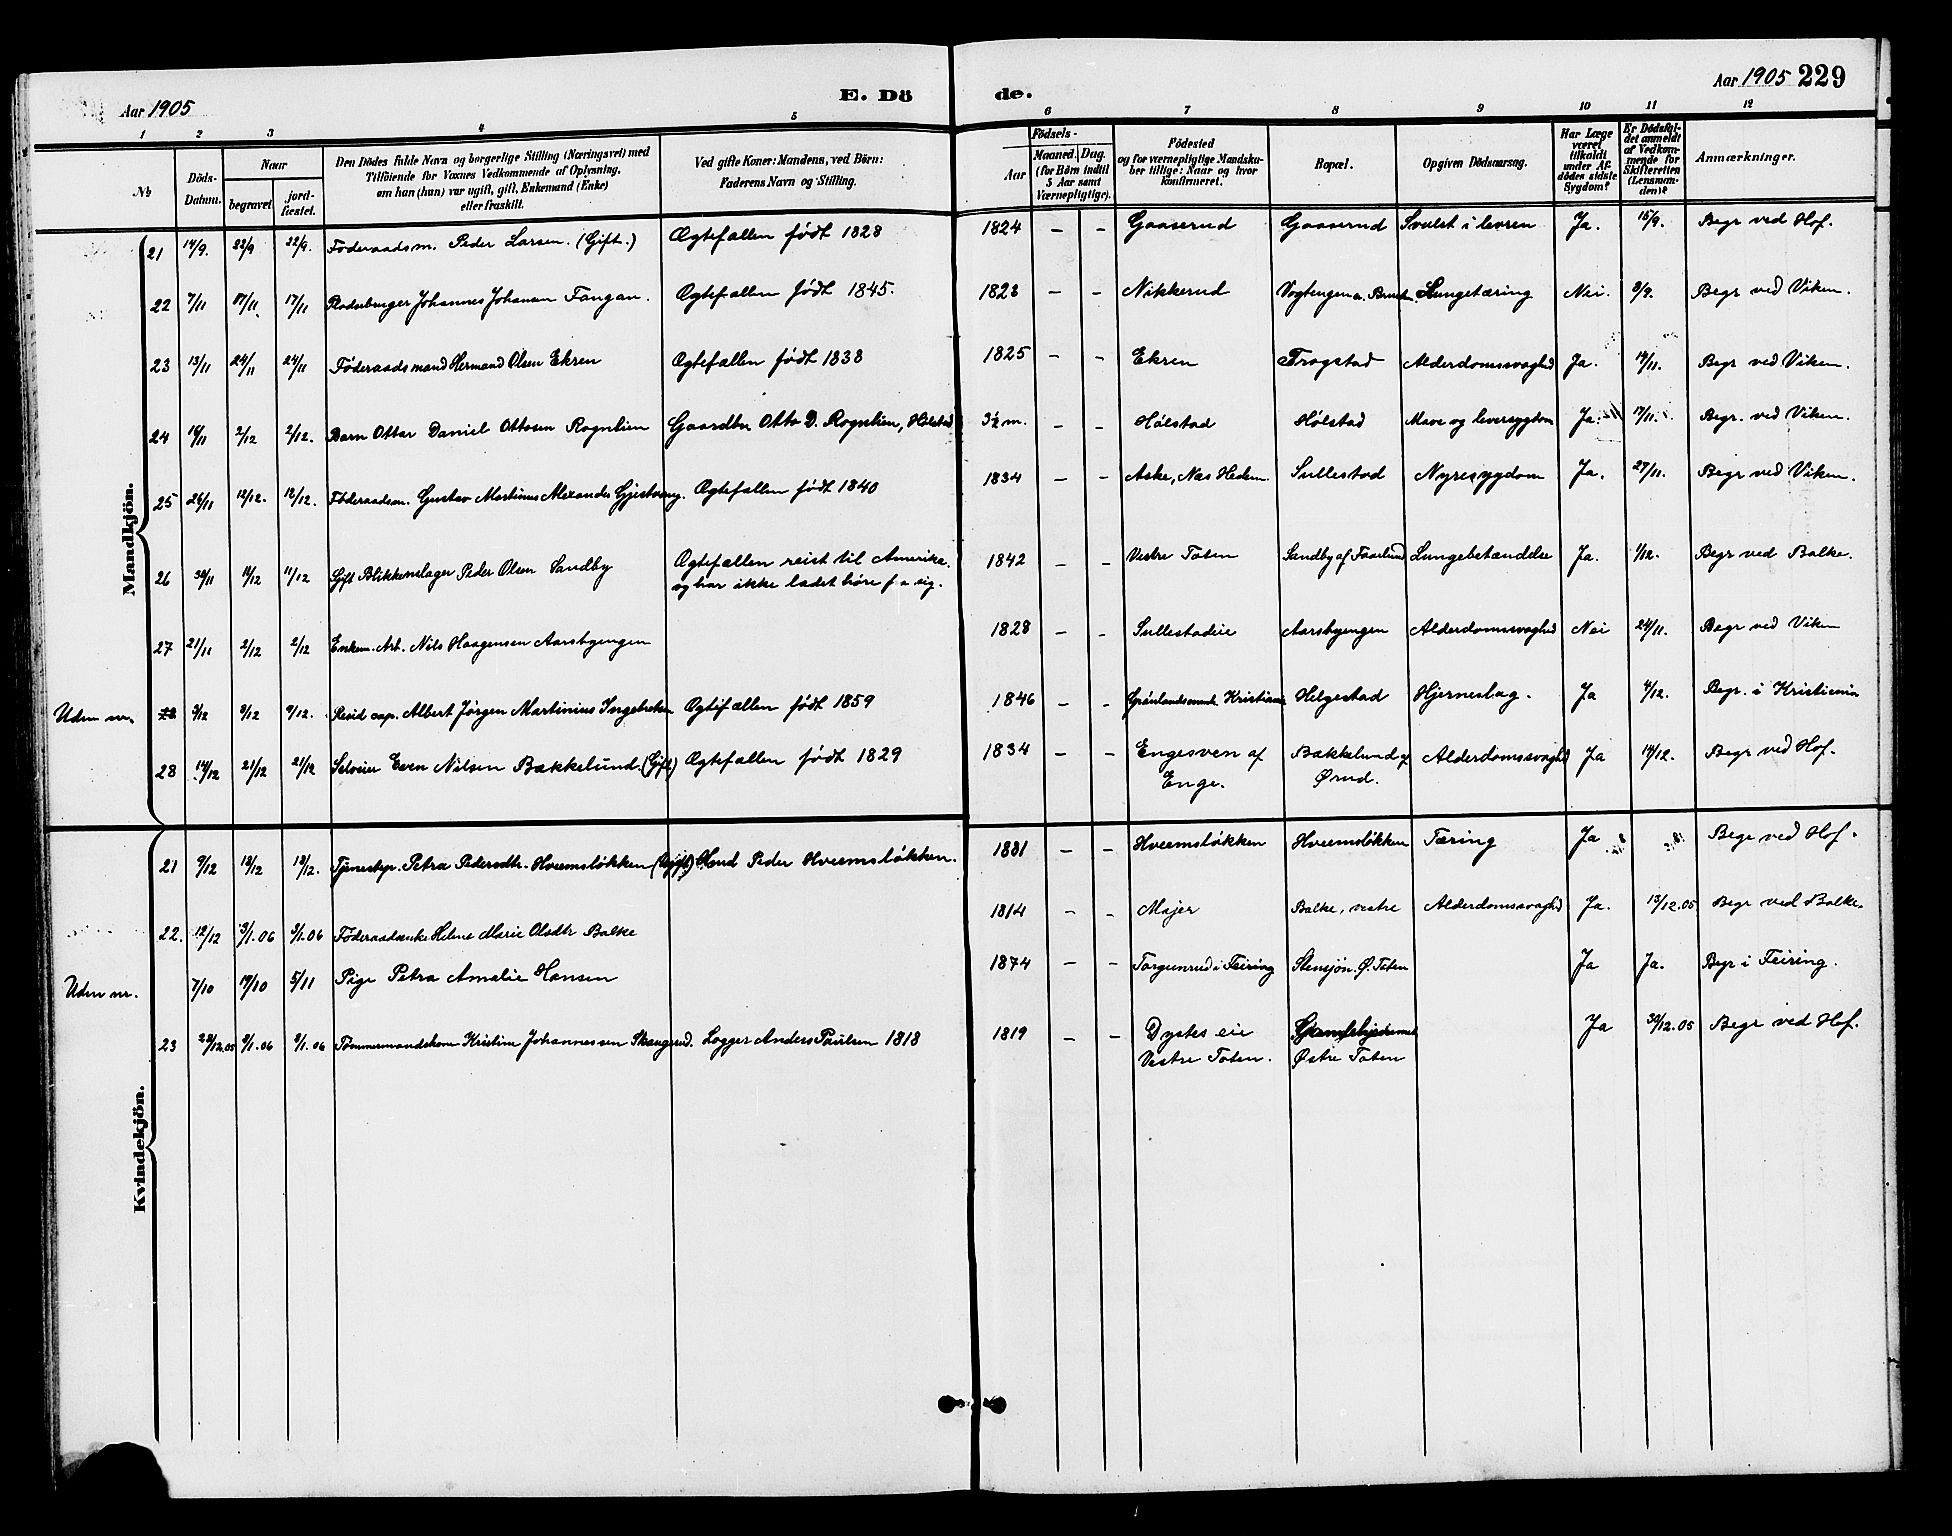 Aar 1905
E. Dö
de.
Aar 1905 229
1 2 3 4 5 6 7 8 9 10 11 12
No
Döds-
Datum.
Naar
begravet.
jord-
fæstet.
Den Dödes fulde Navn og borgerlige Stilling (Næringsvei) med
Tilföiende for Voxnes Vedkommende af Oplysning,
om han (hun) var ugift, gift, Enkemand (Enke)
eller fraskilt.
Ved gifte Koner: Mandens, ved Börn:
Faderens Navn og Stilling.
Födsels-
Aar
Maaned. Dag.
(for Börn indtil
5 Aar samt
Værnepligtige).
Födested
og for værnepligtige Mandska-
ber tillige: Naar og hvor
konfirmeret.
Bopæl.
Opgiven Dödsaarsag.
Har Læge
været
tilkaldt
under Af-
dødes sidste
Sygdom?
Er Dödsfal-
det anmeldt
af Vedkom-
mende for
Skifteretten
(Lensman-
den)?
Anmærkninger.
Mandkjön.
21 14/9. 22/9 22/9. Föderaadsm. Peder Larsen. (Gift.) Ægtefællen født 1828 1824 – – Gaaserud Gaaserud Svulst i levren Ja. 15/9. Begr ved Hof.
22 7/11 17/11 17/11 Johannes Johansen Fangan. Ægtefællen født 1845. 1823 – – Nikkerud Lungetæring Nei. 8/9. Begr ved Viken.
23 13/11 24/11 24/11 Föderaadsmand Hermand Olsen Ekren Ægtefællen født 1838 1825 – – Ekren Trogstad Alderdomssvaghed Ja. 14/11. Begr ved Viken.
24 16/11 2/12 2/12. Barn Ottar Daniel Ottosen Rognlien Gaardbr. Otto D. Rognlien, Hølstad 3½ m. – – Hølstad Hølstad Mave og leversygdom Ja. 17/11. Begr. ved Viken.
25 26/11 12/12. 12/12. Föderaadsm. Gustav Martinus Alexander Gjestvang. Ægtefællen født 1840 1834 – – Aske, Næs Hedem. Sullestad Nyresygdom Ja. 27/11. Begr ved Viken.
26 30/11 11/12 11/12 Gift Blikkenslager Peder Olsen Sandby Ægtefællen reist til Amerika.
og har ikke ladet høre f a sig. 1842 – – Vestre Toten Sandby af Faarlund Lungebetændelse Ja. 1/12. Begr ved Balke.
27 21/11 2/12 2/12 Enkem. Arb. Nils Haagensen Aarsbyengen 1828 – – Sullestadeie Aarsbyengen Alderdomssvaghed Nei 24/11. Begr ved Viken
Uden nr. 3/12 9/12 9/12. Resid cap. Albert Jörgen Martinius Ingebretsen Ægtefællen født 1859 1846 – – Kristiania Helgestad Hjerneslag. Ja 4/12. Begr. i Kristiania
28 14/12 21/12 21/12 Selveier Even Nilsen Bakkelund. (Gift) Ægtefællen født 1829 1834 – – Engesven af
Enge. Bakkelund af
Ørud. Alderdomssvaghed Ja 14/12. Begr ved Hof.
Kvindekjön.
21 9/12 18/12 18/12. Tjenestep. Petra Pedersdtr. Hveemsløkken (Ugift) Peder Hveemsløkken. 1881 – – Hveemsløkken Hveemsløkken Tæring Ja Begr ved Hof.
22. 12/12 3/1.06 3/1.06 Föderaadsenke Helene Marie Olsdtr Balke 1814 – – Majer Balke, vestre Alderdomssvaghed Ja. 13/12.05 Begr ved Balke.
Uden nr. 7/10 14/10 5/11 Pige Petra Amalie Hansen 1874 – – Torgunrud i Feiring Stensjøn. Ø. Toten Ja Ja. Begr i Feiring.
23 28/12.05 9/1.06 9/1.06 Tømmermandskone Kristine Johannessen Skaugerud. Logger Anders Paulsen 1818 1819 – – Dystes eie
Vestre Toten.
Østre Toten Ja 30/12.05 Begr ved Hof.